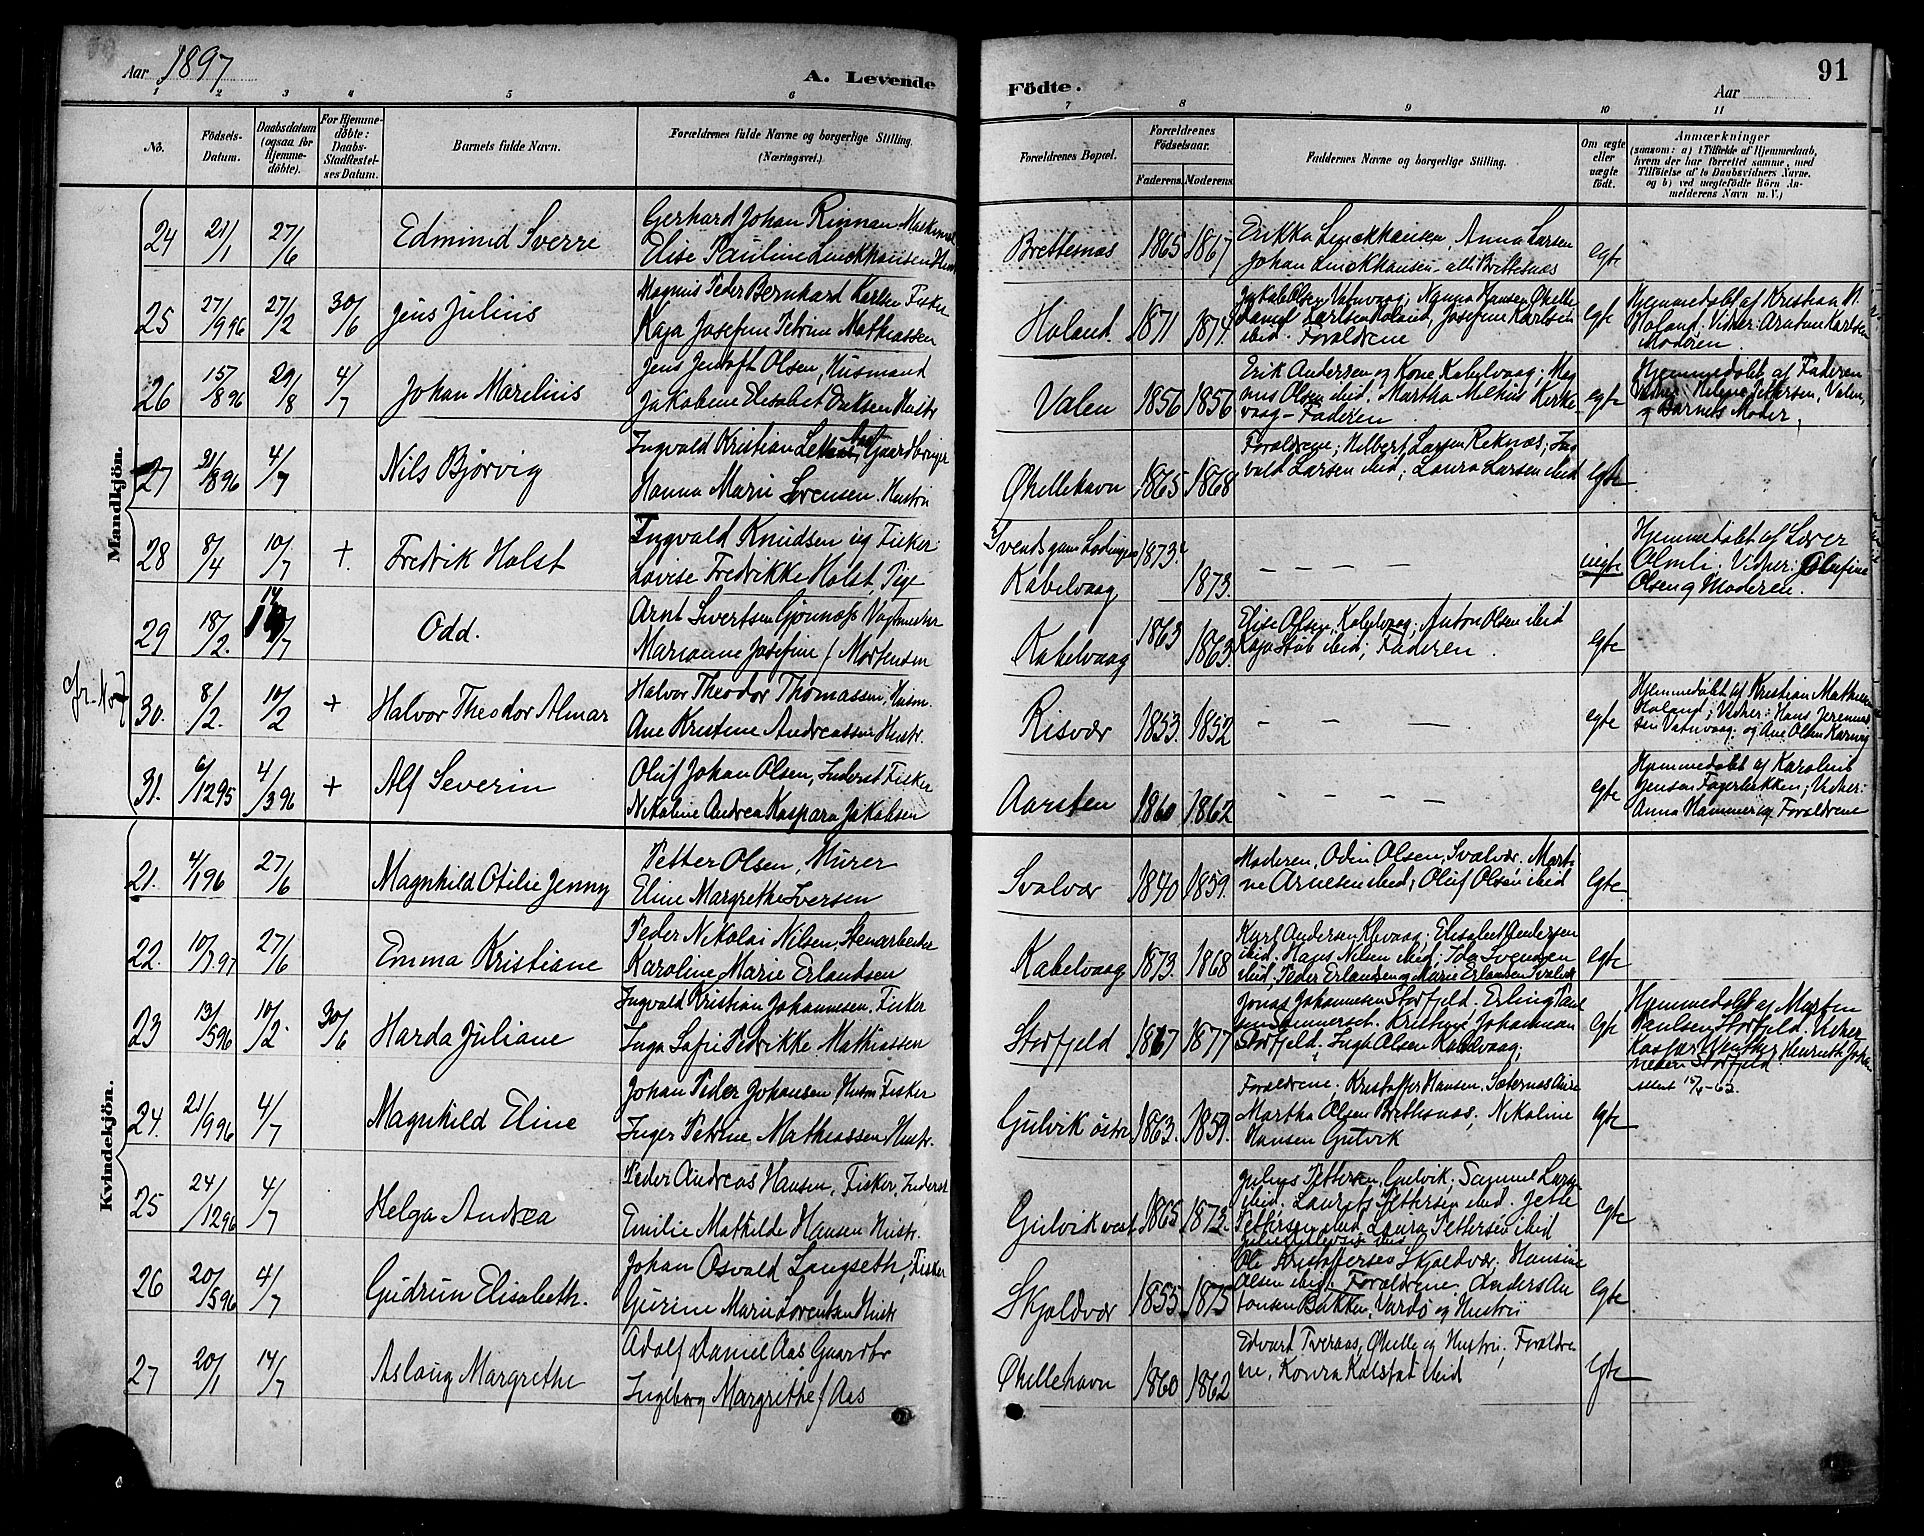 Aar 1897
A. Levende
Födte.
91
Aar
1 2 3 4 5 6
7 8 9 10 11
No.
Födsels-
Datum.
Daabsdatum
(ogsaa for
Hjemme-
döbte).
For Hjemme-
döbte:
Daabs-
Stadfæstel-
ses Datum.
Barnets fulde Navn.
Forældrenes fulde Navne og borgerlige Stilling.
(Næringsvei.)
Forældrenes Bopæl.
Forældrenes
Födselsaar.
Faderens.
Moderens.
Faddernes Navne og borgerlige Stilling.
Om ægte
eller
uægte
födt.
Anmærkninger
(saasom: a) i Tilfælde af Hjemmedaab,
hvem der har forrettet samme, med
Tilföielse af to Daabsvidners Navne,
og b) ved uægtefödte Börn An-
melderens Navn m. V.)
Mandkjön.
24 21/1 27/6 Edmund Sverre
Gerhard Johan Rinman
Elise Pauline Linckhausen
Brettesnæs 1865 1867
Erikka Linckhausen, Anna Larsen
Johan Linckhausen – alle Brettesnæs
egte
25 27/9 96 27/2 30/6 Jens Julius
Magnus Peder Bernhard Karlsen Fisker
Kaja Josefine Petrine Mathiassen
Holand. 1871 1874.
Jakob Olsen Vatnvaag; Nanna Hansen Øhelle
Daniel Karlsen Holand, Josefine Karlsen
ibid. Forældrene
egte
Hjemmedøbt af Kristian N.
Holand. Vidner: Karlsen
Moderen.
26 15/8 96 29/8 4/7 Johan Marelius
Jens Jentoft Olsen, Husmand
Jakobine Elisabet Eriksen Hustr
Valen 1856 1856
Erik Andersen og Kone Kabelvaag; Mag
nus Olsen ibid, Martha Kirke
vaag – Faderen
egte
Hjemmedøbt af Faderen
Vidner: Helene Pettersen, Valen,
og Barnets Moder,
27 31/8 96 4/7 Nils Bjørvig
Ingvald Kristian Gaardbruger
Hanna Marie Sørensen. Hustru
Øhellehavn 1865 1868
Forældrene; Helbert Larsen Reknæs; Ing
vald Larsen ibid; Laura Larsen ibid
egte
28 8/4 10/7 + Fredrik Holst
Ingvald Knudsen ug Fisker
Lovise Fredrikke Holst, Pige
Kabelvaag 1873. 1873.
– – – –
uegte
Hjemmedøbt af Lærer
Olmli. Vidner: Olufine
Olsen og Moderen.
29 18/2. 14/7 Odd.
Arnt Sivertsen Vagtmester
Marianne Josefine f. Mortensen
Kabelvaag 1863 1863
Elise Olsen, Kabelvaag; Anton Olsen ibid
Kaja Støb ibid; Faderen.
egte
30. 8/2. 10/2 + Halvor Theodor Almar
Halvor Theodor Thomassen, Husm.
Ane Kristine Andreassen Hustr.
Risvær 1853. 1852
– – – –
egte
Hjemmedøbt af Kristian
Holand; Vidner: Hans
sen Vatnvaag. og Ane Olsen
31. 6/12 95 4/3 96 + Alf Severin
Oluf Johan Olsen, Inderst Fisker
Nikoline Andrea Kaspara Jakobsen
Aarsten 1860 1862
– – – –
egte
Hjemmedøbt af Karoline
Jensen Fagerbakken; Vidner:
Anna Hammer og Forældrene
Kvindekjön.
21. 4/1 96 27/6 Magnhild Otilie Jenny
Petter Olsen, Murer
Eline Margrethe Iversen
Svolvær 1840 1859.
Moderen, Odin Olsen, Svolvær. Marti
ne Arnesen ibid; Oluf Olsen ibid
egte
22. 10/1 97 27/6 Emma Kristiane
Peder Nikolai Nilsen, Stenarbeider
Karoline Marie Erlandsen
Kabelvaag 1873. 1868
Andersen Kbvaag; Elisabet Andersen
ibid. Hans Nilsen ibid; Ida Svendsen
ibid, Peder Erlandsen og Marie Erlandsen Svolvær
egte
23 13/5 96 10/2. 30/6 Harda Juliane
Ingvald Kristian Johannesen. Fisker
Inga Sofie Pedrikke Mathiassen
Storfjeld 1867 1877
Jonas Johannesen Storfjeld. Erling
Kristine Johannesen
Storfjeld; Inga Olsen Kabelvaag;
egte
Hjemmedøbt af Morten
Paulsen Storfjeld. Vidner
Kaspar Henriette Joha
nesen Storfjeld.
24. 21/9 96 4/7 Magnhild Eline
Johan Peder Johansen Husm Fisker
Inger Petrine Mathiassen Hustr.
Gulvik østre 1863. 1859.
Forældrene; Kristoffer Hansen
Martha Olsen Brettesnæs; Nikoline
Hansen Gulvik
egte
25 24/12 96 4/7 Helga Andrea
Peder Andreas Hansen, Fisker, Inderst
Emilie Mathilde Hansen Hustr.
Gulvik vest. 1865 1873.
Julius Pettersen, Gulvik, Samuel
ibid. Laurats Pettersen ibid. Jette
Pettersen ibid. Laura Pettersen ibid
egte
26 20/5 96 4/7 Gudrun Elisabeth.
Johan Osvald Langseth, Fisker
Gurine Marie Lorentsen Hustr
Skjoldvær 1855. 1875
Ole Kristoffersen Skjoldvær; Hansine
Olsen ibid; Forældrene; Anders An
tonsen Bakken, Vardø og Hustru
egte
27 20/1 14/7 Aslaug Margrethe
Adolf Daniel Aas Gaardbr
Ingeborg Margrethe f. Aas
Øhellehavn 1860 1862
Edvart Tveraas, Øhelle og Hustru; Forældre
ne, Konra Kolstad ibid
egte